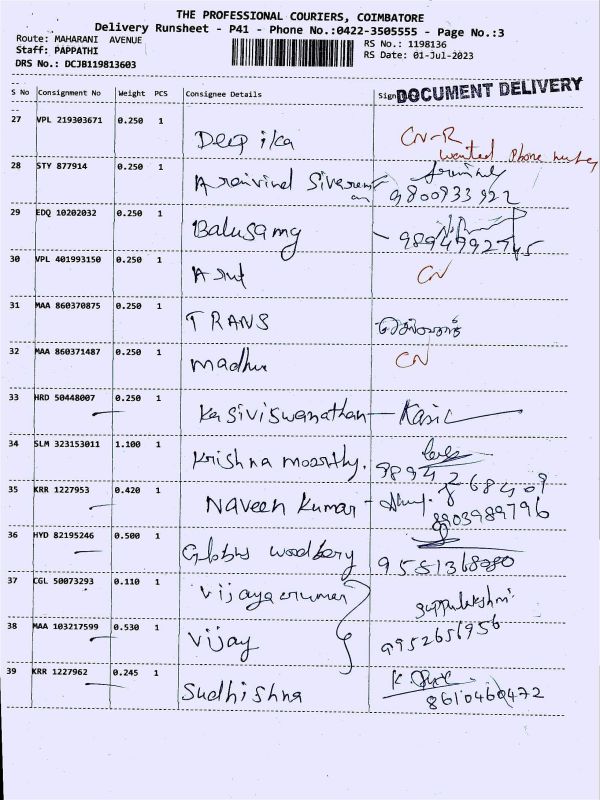 THE PROFESSIONAL COURIERS, COIMBATORE
Delivery Runsheet - P41 - Phone No.:0422-3505555 - Page No.:3
Route: MAHARANI AVENUE
Staff: PAPPATHI
DRS No.: DCJB119813603
RS No.: 1198136
RS Date: 01-Jul-2023
S No Consignment No Weight PCS Consignee Details Sign
DOCUMENT DELIVERY
27 VPL 219303671 0.250 1 Deepika CN-R
wanted phone
28 STY 877914 0.250 1 Aravind Sivaram
9800933922
29 EDQ 10202032 0.250 1 Balusamy 9894992745
30 VPL 401993150 0.250 1 Arul CN
31 MAA 860370875 0.250 1 TRANS
32 MAA 860371487 0.250 1 Madhu CN
33 HRD 50448007 0.250 1 Kasiviswanathan Kasi
34 SLM 323153011 1.100 1 Krishna moorthy. 9894268409
35 KRR 1227953 0.420 1 Naveen Kumar
8903989796
36 HYD 82195246 0.500 1 Gibbs woodbery
37 CGL 50073293 0.110 1
38 MAA 103217599 0.530 1 Vijay 9952656956
39 KRR 1227962 0.245 1 Sudhishna 8610460472